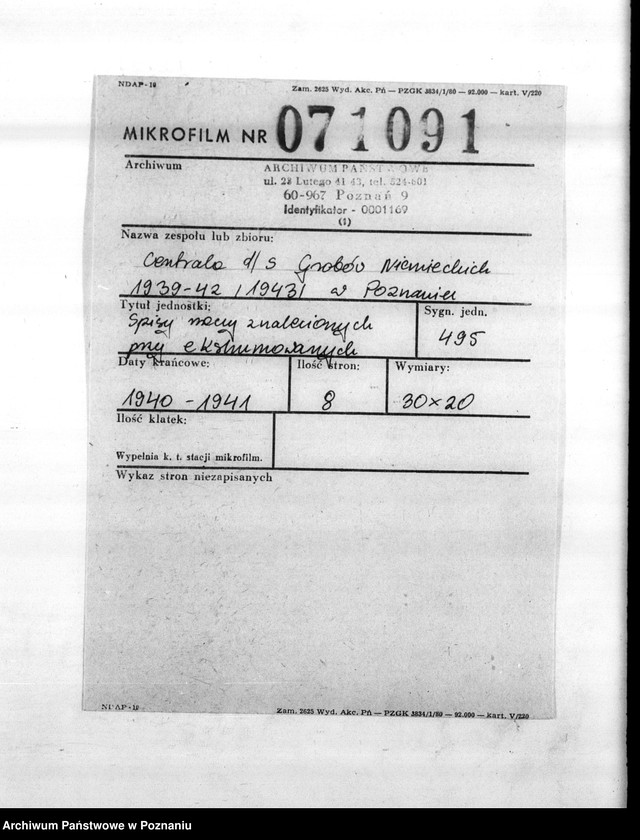 NDAP-19
Zam. 2625 Wyd. Akc. Pń — PZGK 3834/1/80 — 92.000 — kart. V/220
MIKROFILM NR 071091
Archiwum
ARCHIWUM PAŃSTWOWE
ul. 23 Lutego 41 43, tel. 524-601
60-967 Poznań 9
Identyfikator - 0001169
(1)
Nazwa zespołu lub zbioru:
Centrala d/s Grobów Niemieckich
1939-42 /1943/ w Poznaniu
Tytuł jednostki:
Sygn. jedn.
Spisy rzeczy znalezionych
przy ekshumowanych
495
Daty krańcowe:
Ilość stron:
Wymiary:
1940 - 1941
8
30x20
Ilość klatek:
Wypełnia k. t. stacji mikrofilm.
Wykaz stron niezapisanych
NDAP-19
Zam. 2625 Wyd. Akc. Pń — PZGK 3834/1/80 — 92.000 — kart. V/220
Archiwum Państwowe w Poznaniu